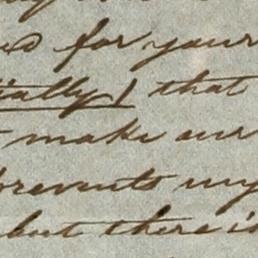 for your
ially) that
make our
prevents my
but there is